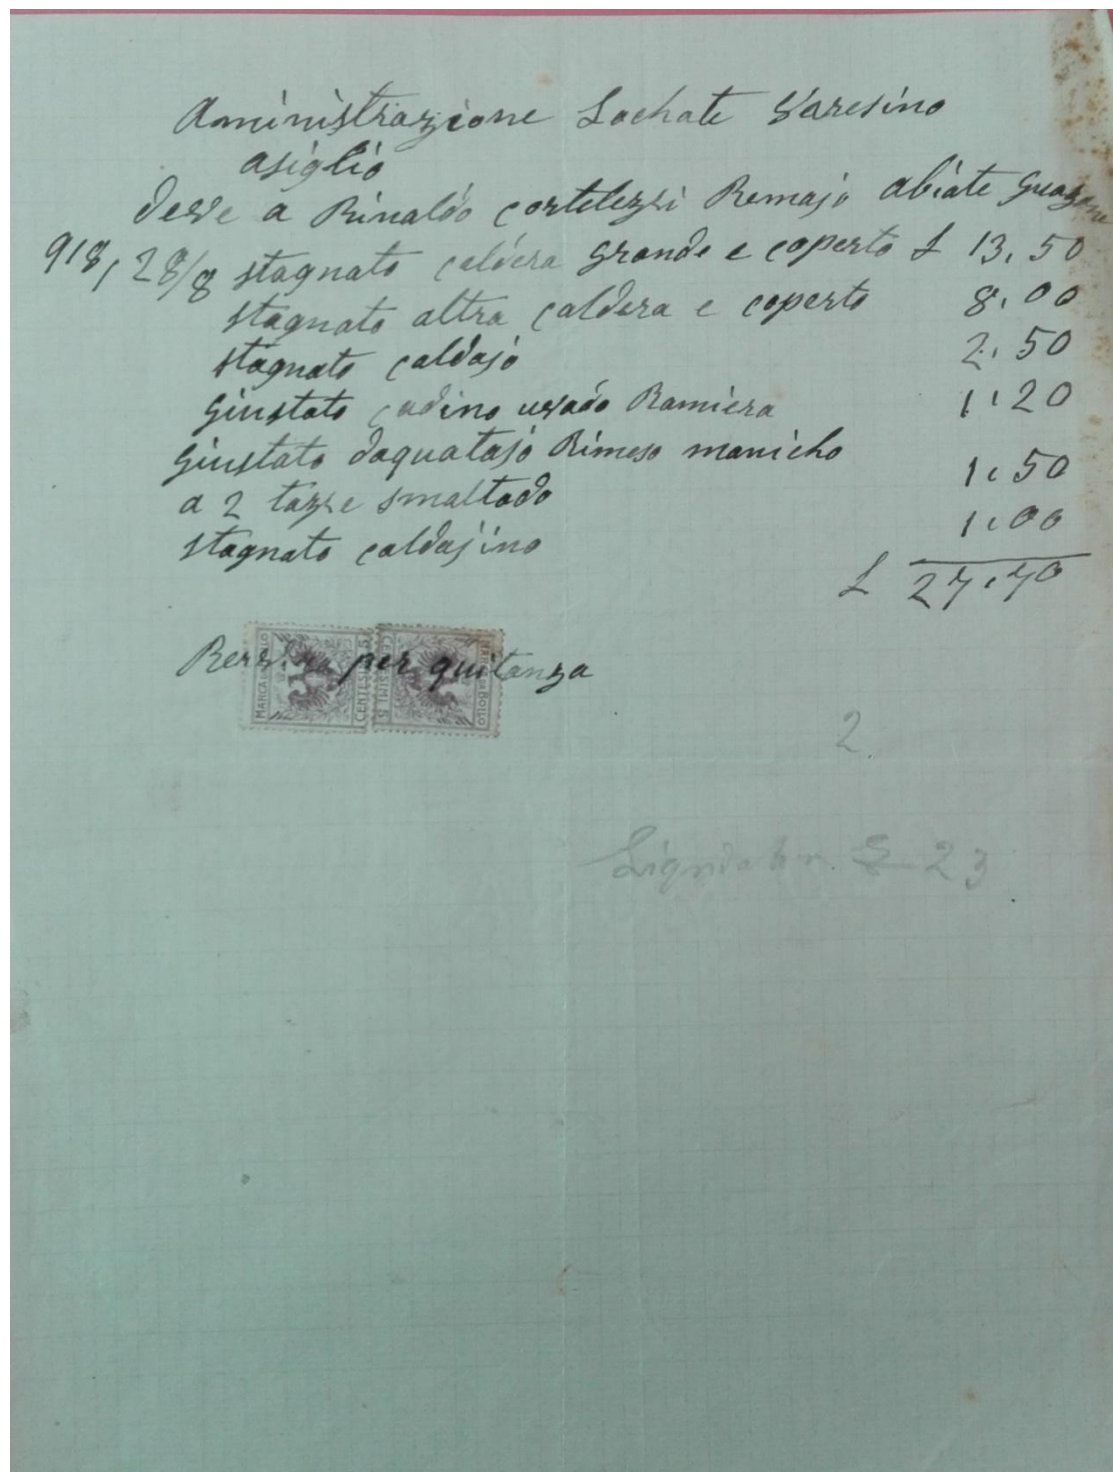 Aministrazione Lochate Varesino
asiglio
deve a Rinaldo cortelezzi Remajo abiate Guazone
918, 28/8 stagnato caldera grande e coperto £ 13,50
stagnato altra caldera e coperto 8,00
stagnato caldajo 2,50
giustato cadino usado Ramiera 1,20
giustato daquatajo Rimeso manicho
a 2 tazze smaltado 1,50
stagnato caldajino 1,00
£ 27,70
per quitanza
MARCA DA BOLLO
CENTESIMI 5
CENTESIMI 5
MARCA DA BOLLO
2.
23